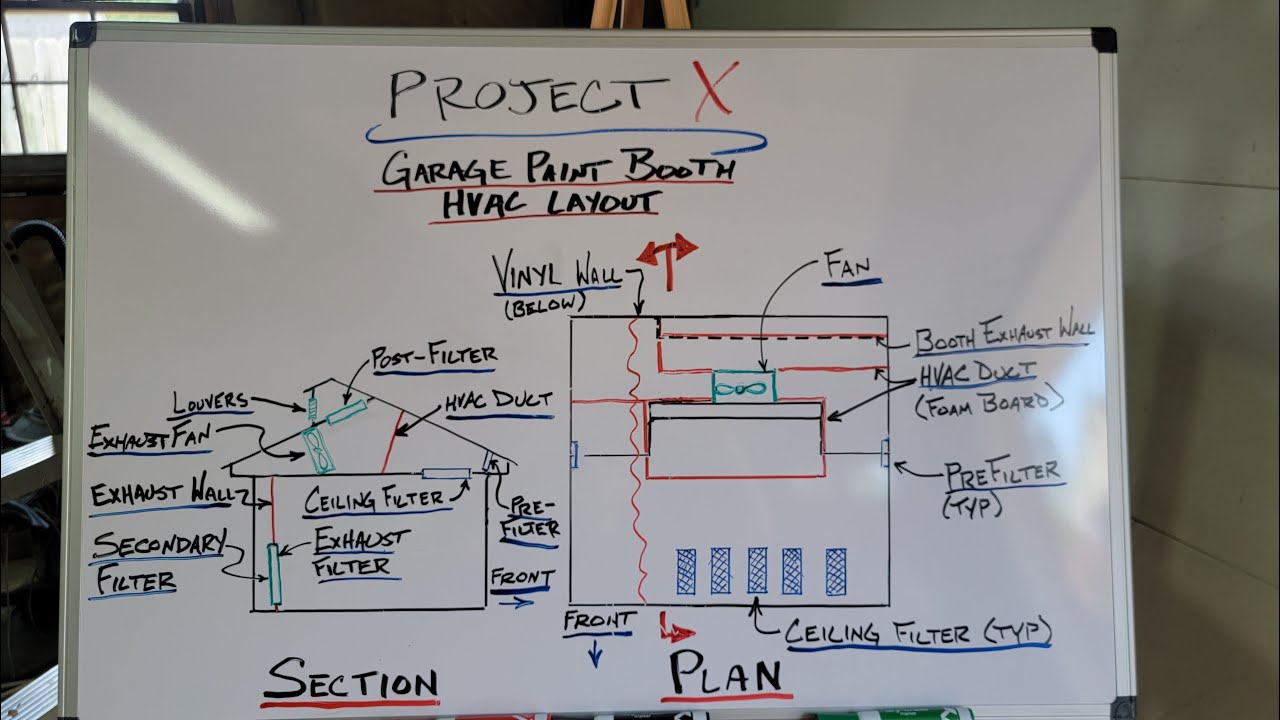 PROJECT X
GARAGE PAINT BOOTH
HVAC LAYOUT
POST-FILTER
LOUVERS
HVAC DUCT
EXHAUST FAN
EXHAUST WALL
CEILING FILTER
PRE-
FILTER
SECONDARY
FILTER
EXHAUST
FILTER
FRONT
SECTION
VINYL WALL
(BELOW)
FAN
BOOTH EXHAUST WALL
HVAC DUCT
(FOAM BOARD)
PREFILTER
(TYP)
FRONT
CEILING FILTER (TYP)
PLAN